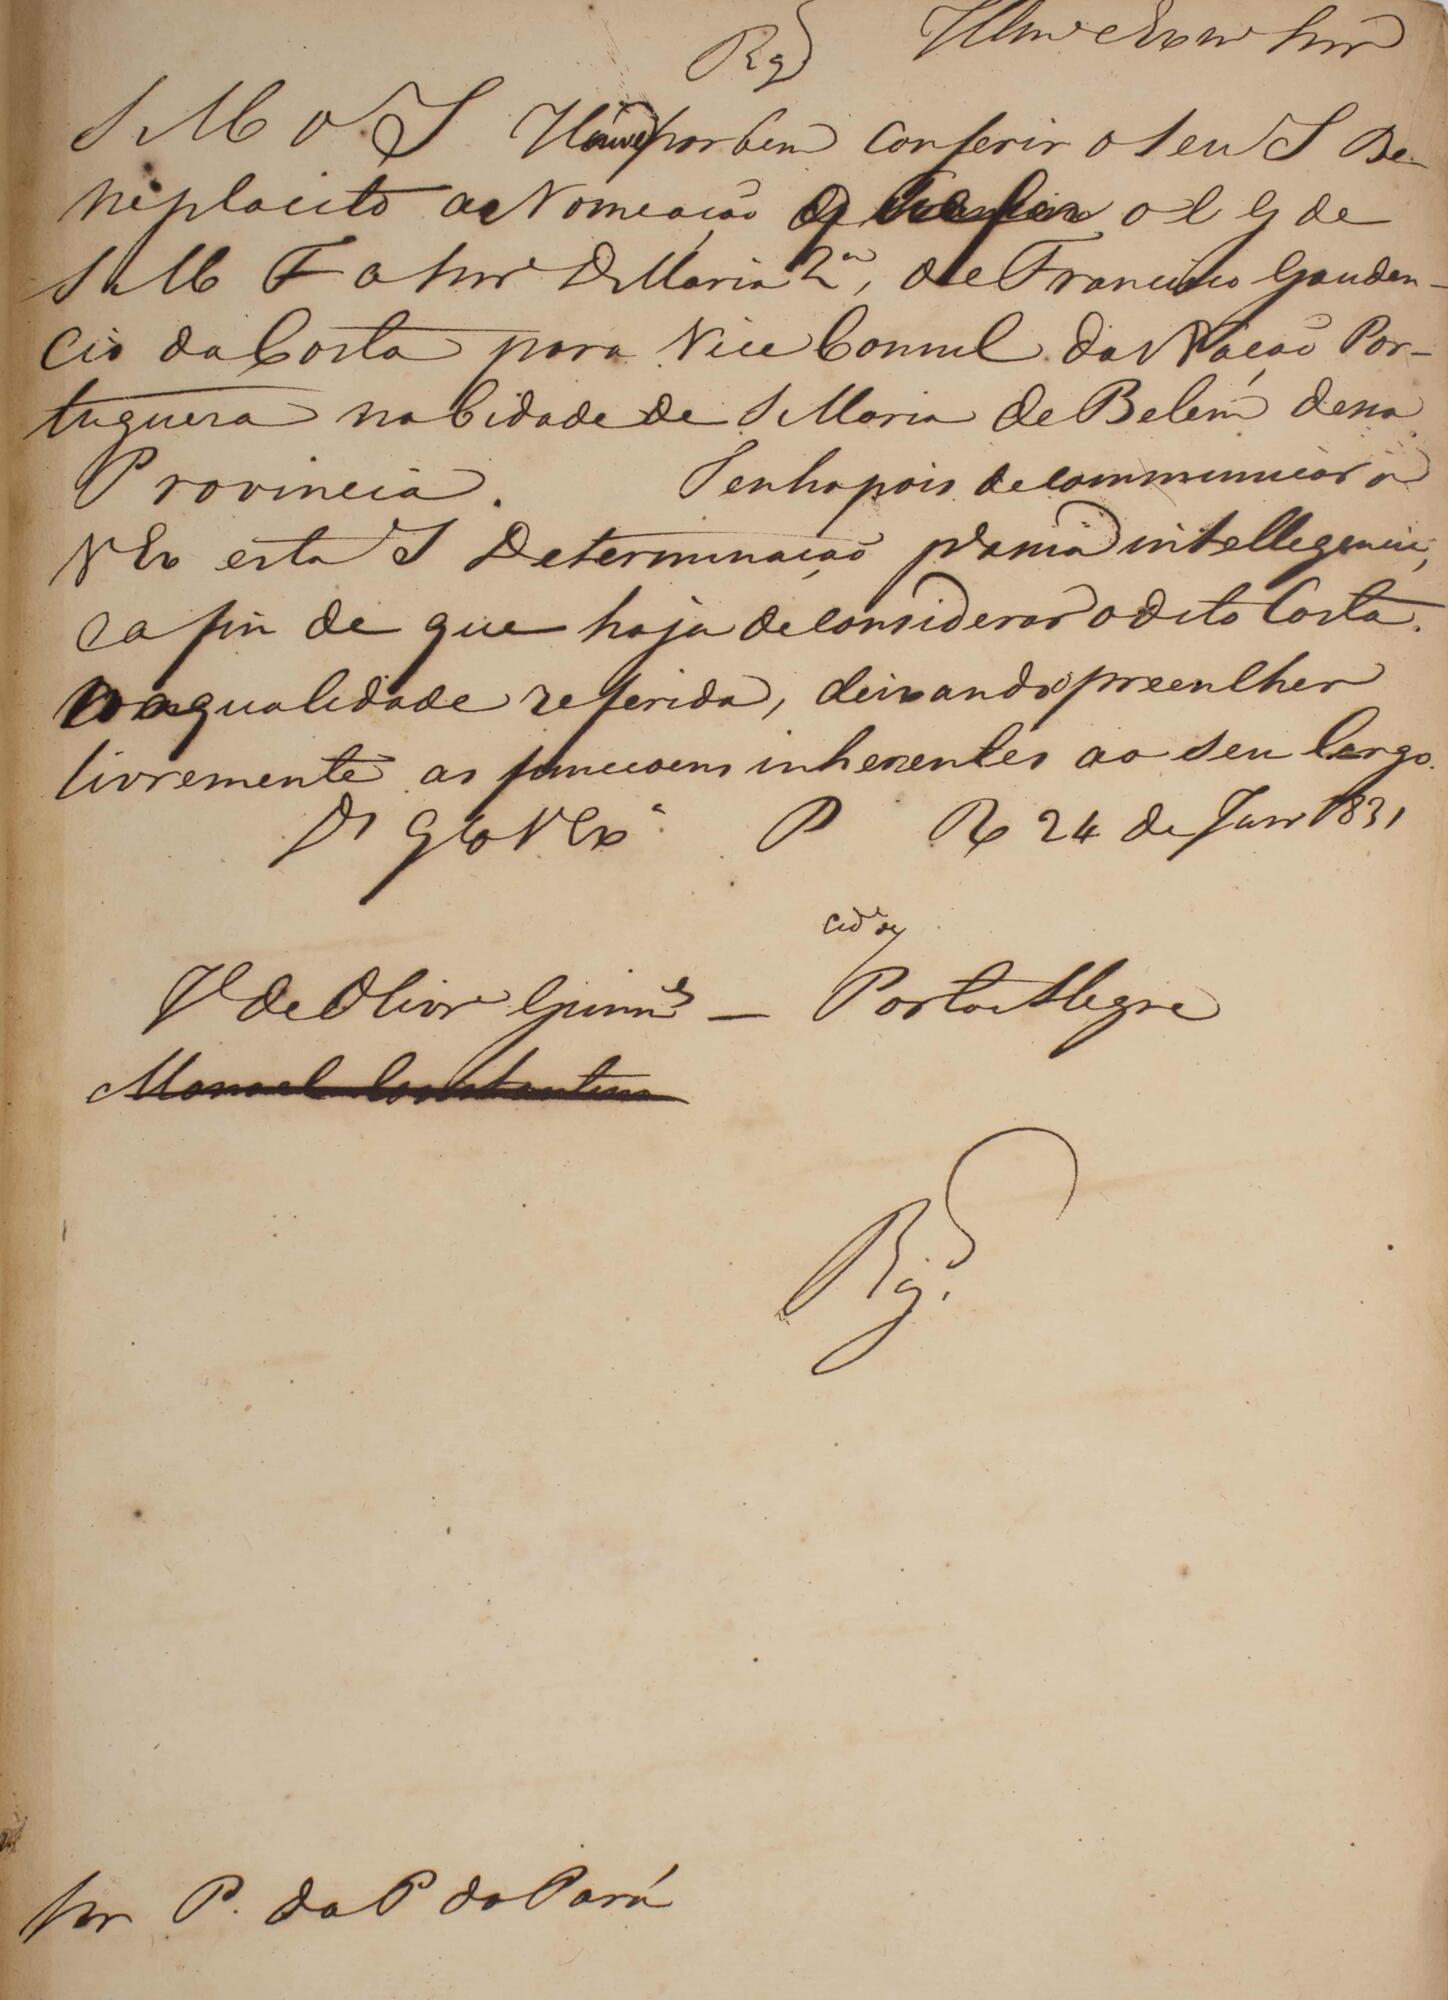 Illmo e Exmo Snr
Rgo
S M o S Houve por bem conferir o seu S Be-
neplacito a Nomeação q o C G de
S M F a Snr D Maria 2ª, de Francisco Gauden-
cio da Costa para Vice Consul da Nação Por-
tugueza na Cidade de S Maria de Belém dessa
Provincia. Tenho pois de communicar a
V Ex esta S Determinação pª a sua intellegencia,
e a fin de que haja de considerar o dito Costa
na qualidade referida, deixando-o preenlher
livremente as funccoens inherentes ao seu Cargo.
Ds Gde V Exª P R 24 de Janr 1831
cide de
Je de Olivr Guim es — Porto Alegre
Manoel Constantino
Rg.
Snr P. da P do Pará